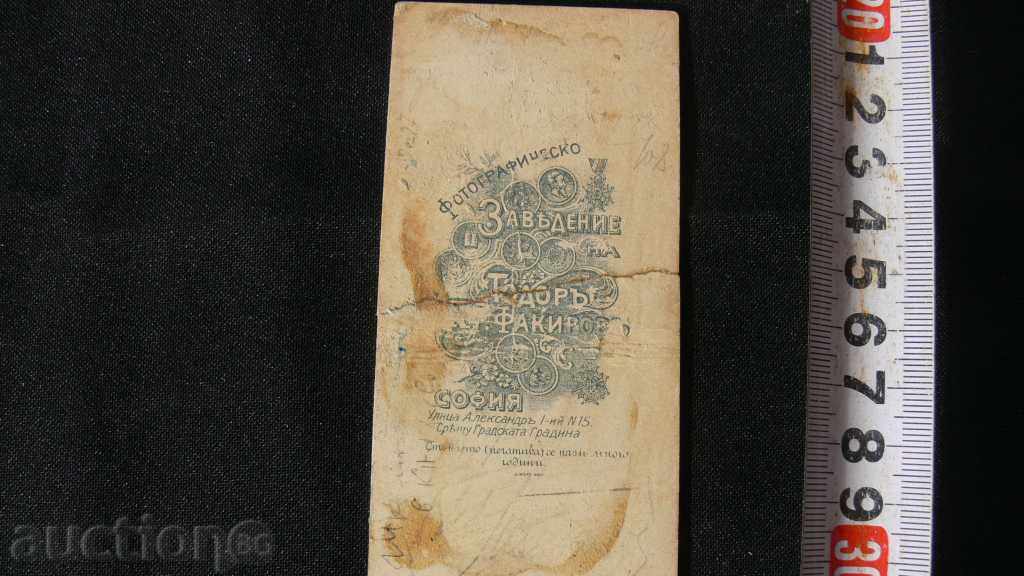 ФОТОГРАФИЧЕСКО
ЗАВѢДЕНИЕ
НА
ТОДОРЪ
ФАКИРОВ
СОФИЯ
Улица Александръ I-ий N 15.
Срѣщу Градската Градина
(негатива) се пази много
години.
108
20
1
2
3
4
5
6
7
8
9
30
auction.bg